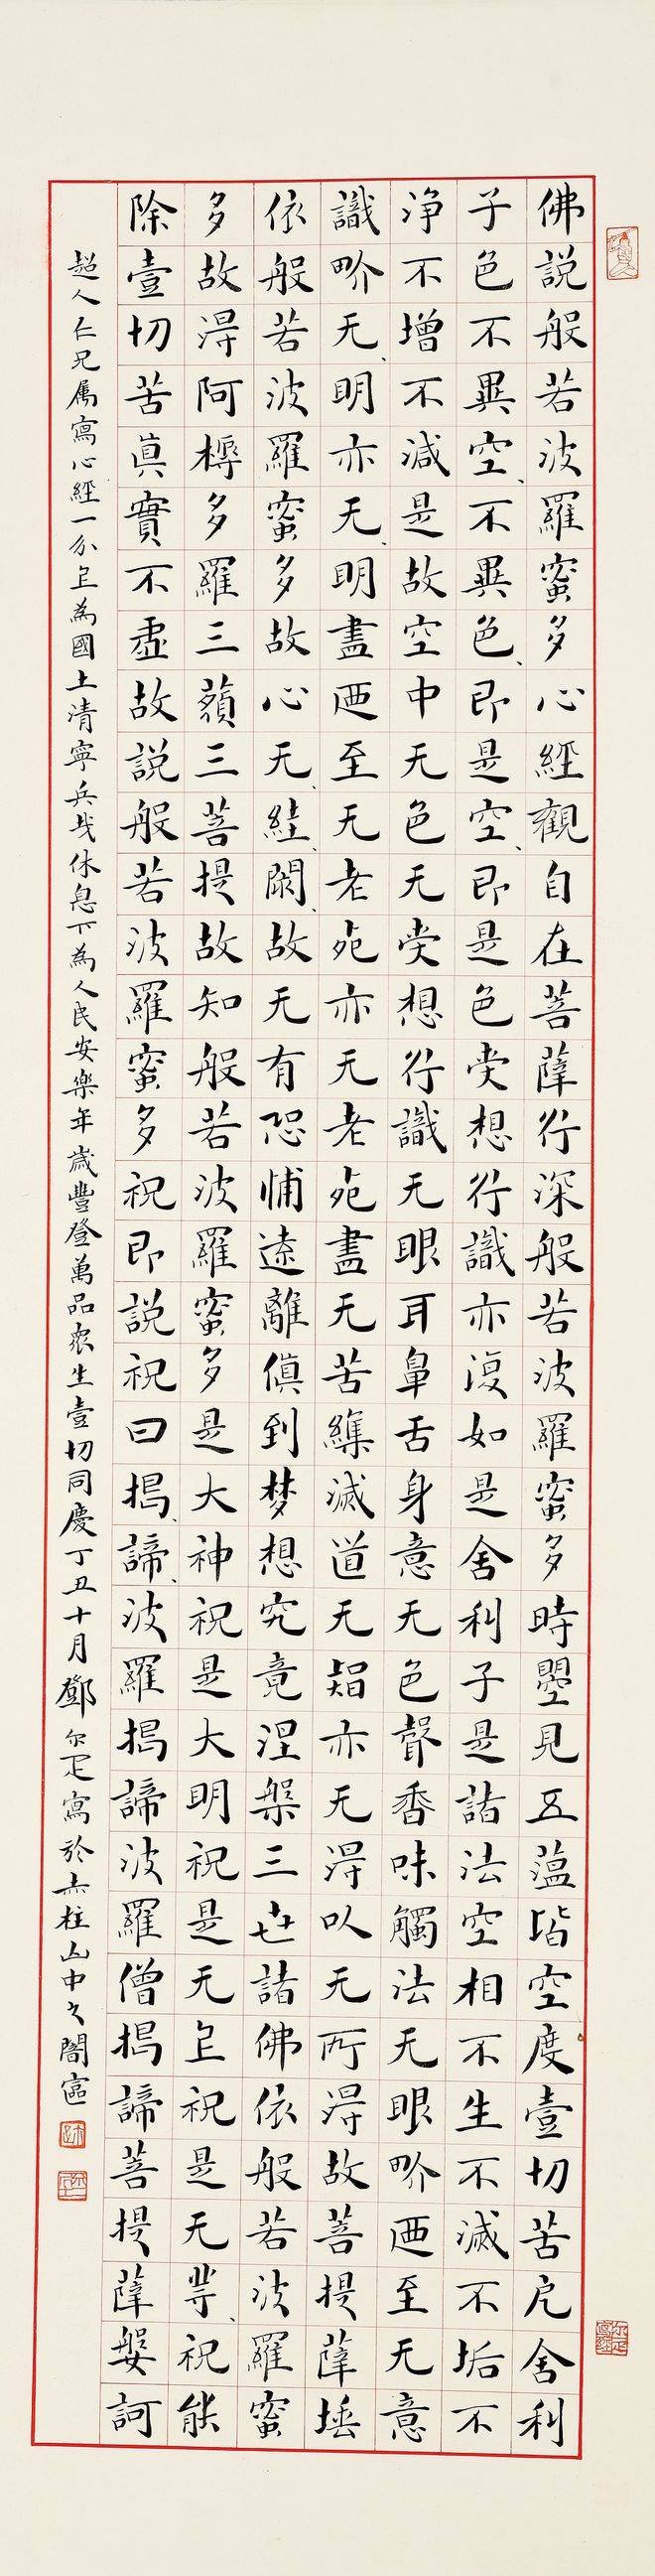 佛說般若波羅蜜多心經觀自在菩薩行深般若波羅蜜多時曌見五薀皆空度壹切苦戹舍利
子色不異空、不異色、即是空、即是色受想行識亦復如是舍利子是諸法空相不生不滅不垢不
淨不增不減是故空中无色无受想行識无眼耳鼻舌身意无色聲香味觸法无眼界迺至无意
識界无、明亦无、明盡迺至无老死亦无老死盡无苦集滅道无智亦无得以无所得故菩提薩埵
依般若波羅蜜多故心无、絓、閡、故无有恐悑遠離傎到梦想究竟涅槃三世諸佛依般若波羅蜜
多故得阿檽多羅三藐三菩提故知般若波羅蜜多是大神祝是大明祝是无上祝是无等、祝能
除壹切苦真實不虛故說般若波羅蜜多祝即說祝曰揭、諦、波羅揭諦波羅僧揭諦菩提薩婆訶
超人仁兄属寫心經一分上為國土清寧兵戈休息下為人民安樂年歲豐登萬品衆生壹切同慶丁丑十月鄧尔疋寫於赤柱山中之闇